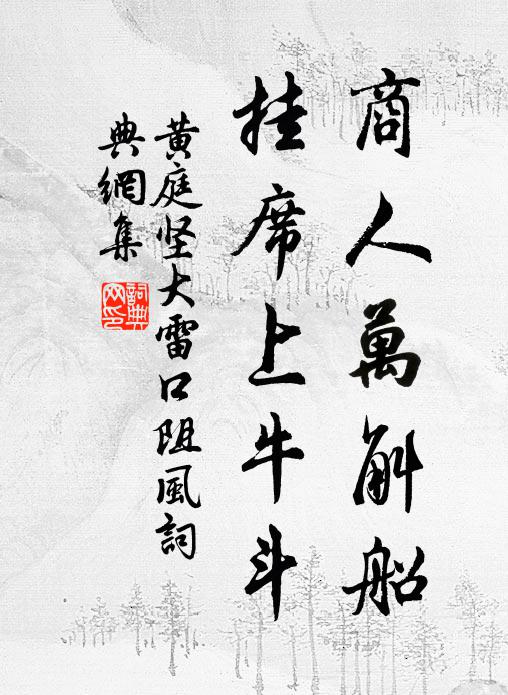 商人萬斛船
挂席上牛斗
黄庭坚大雷口阻風詞
典網集
詞典網印